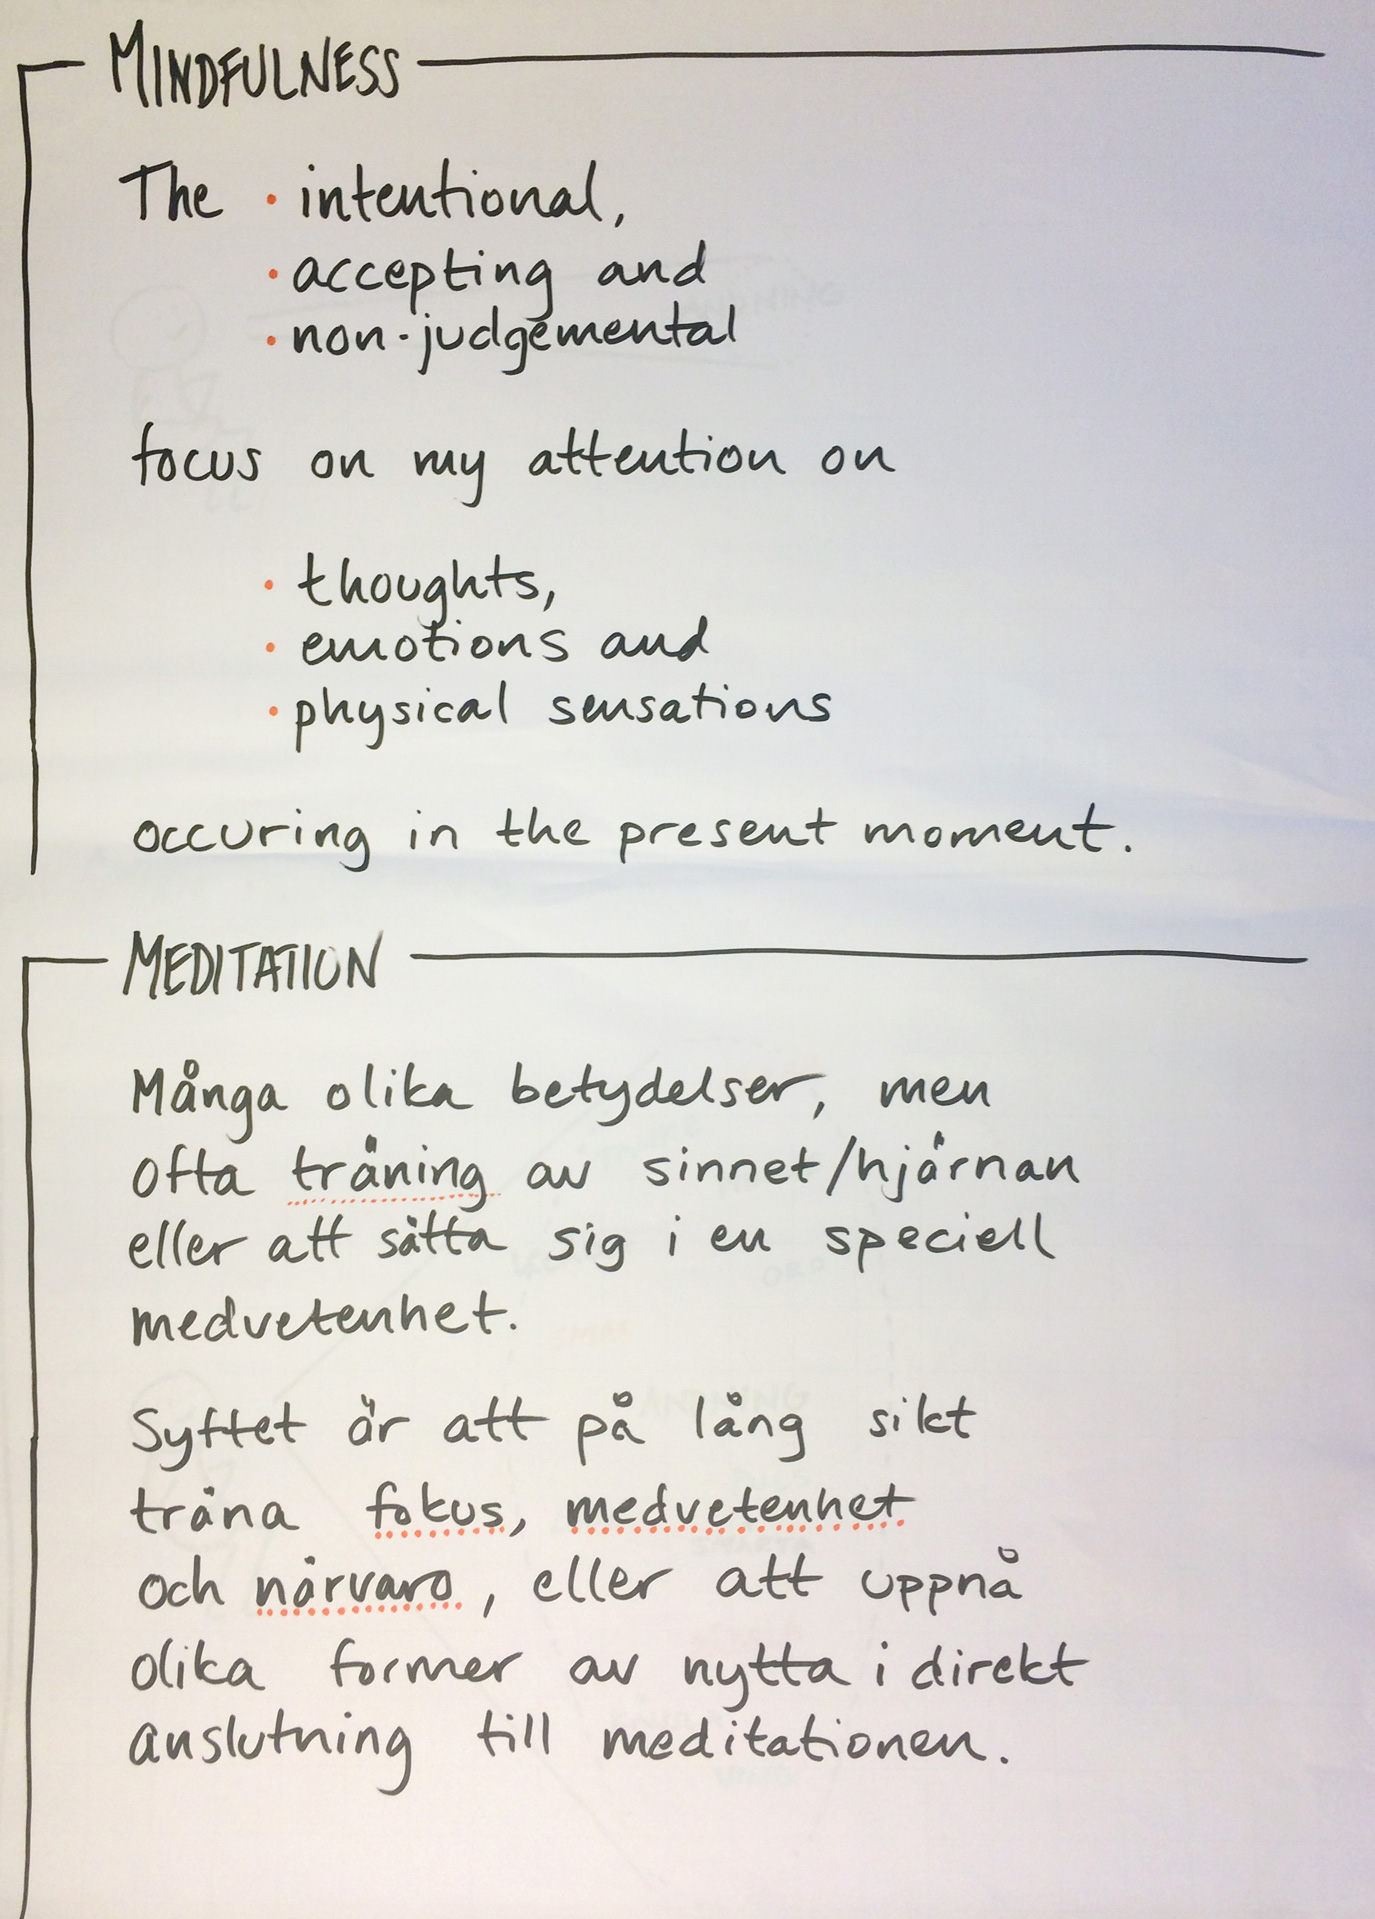 MINDFULNESS
The • intentional,
• accepting and
• non-judgemental
focus on my attention on
• thoughts,
• emotions and
• physical sensations
occuring in the present moment.
MEDITATION
Många olika betydelser, men
ofta träning av sinnet/hjärnan
eller att sätta sig i en speciell
medvetenhet.
Syftet är att på lång sikt
träna fokus, medvetenhet
och närvaro, eller att uppnå
olika former av nytta i direkt
anslutning till meditationen.